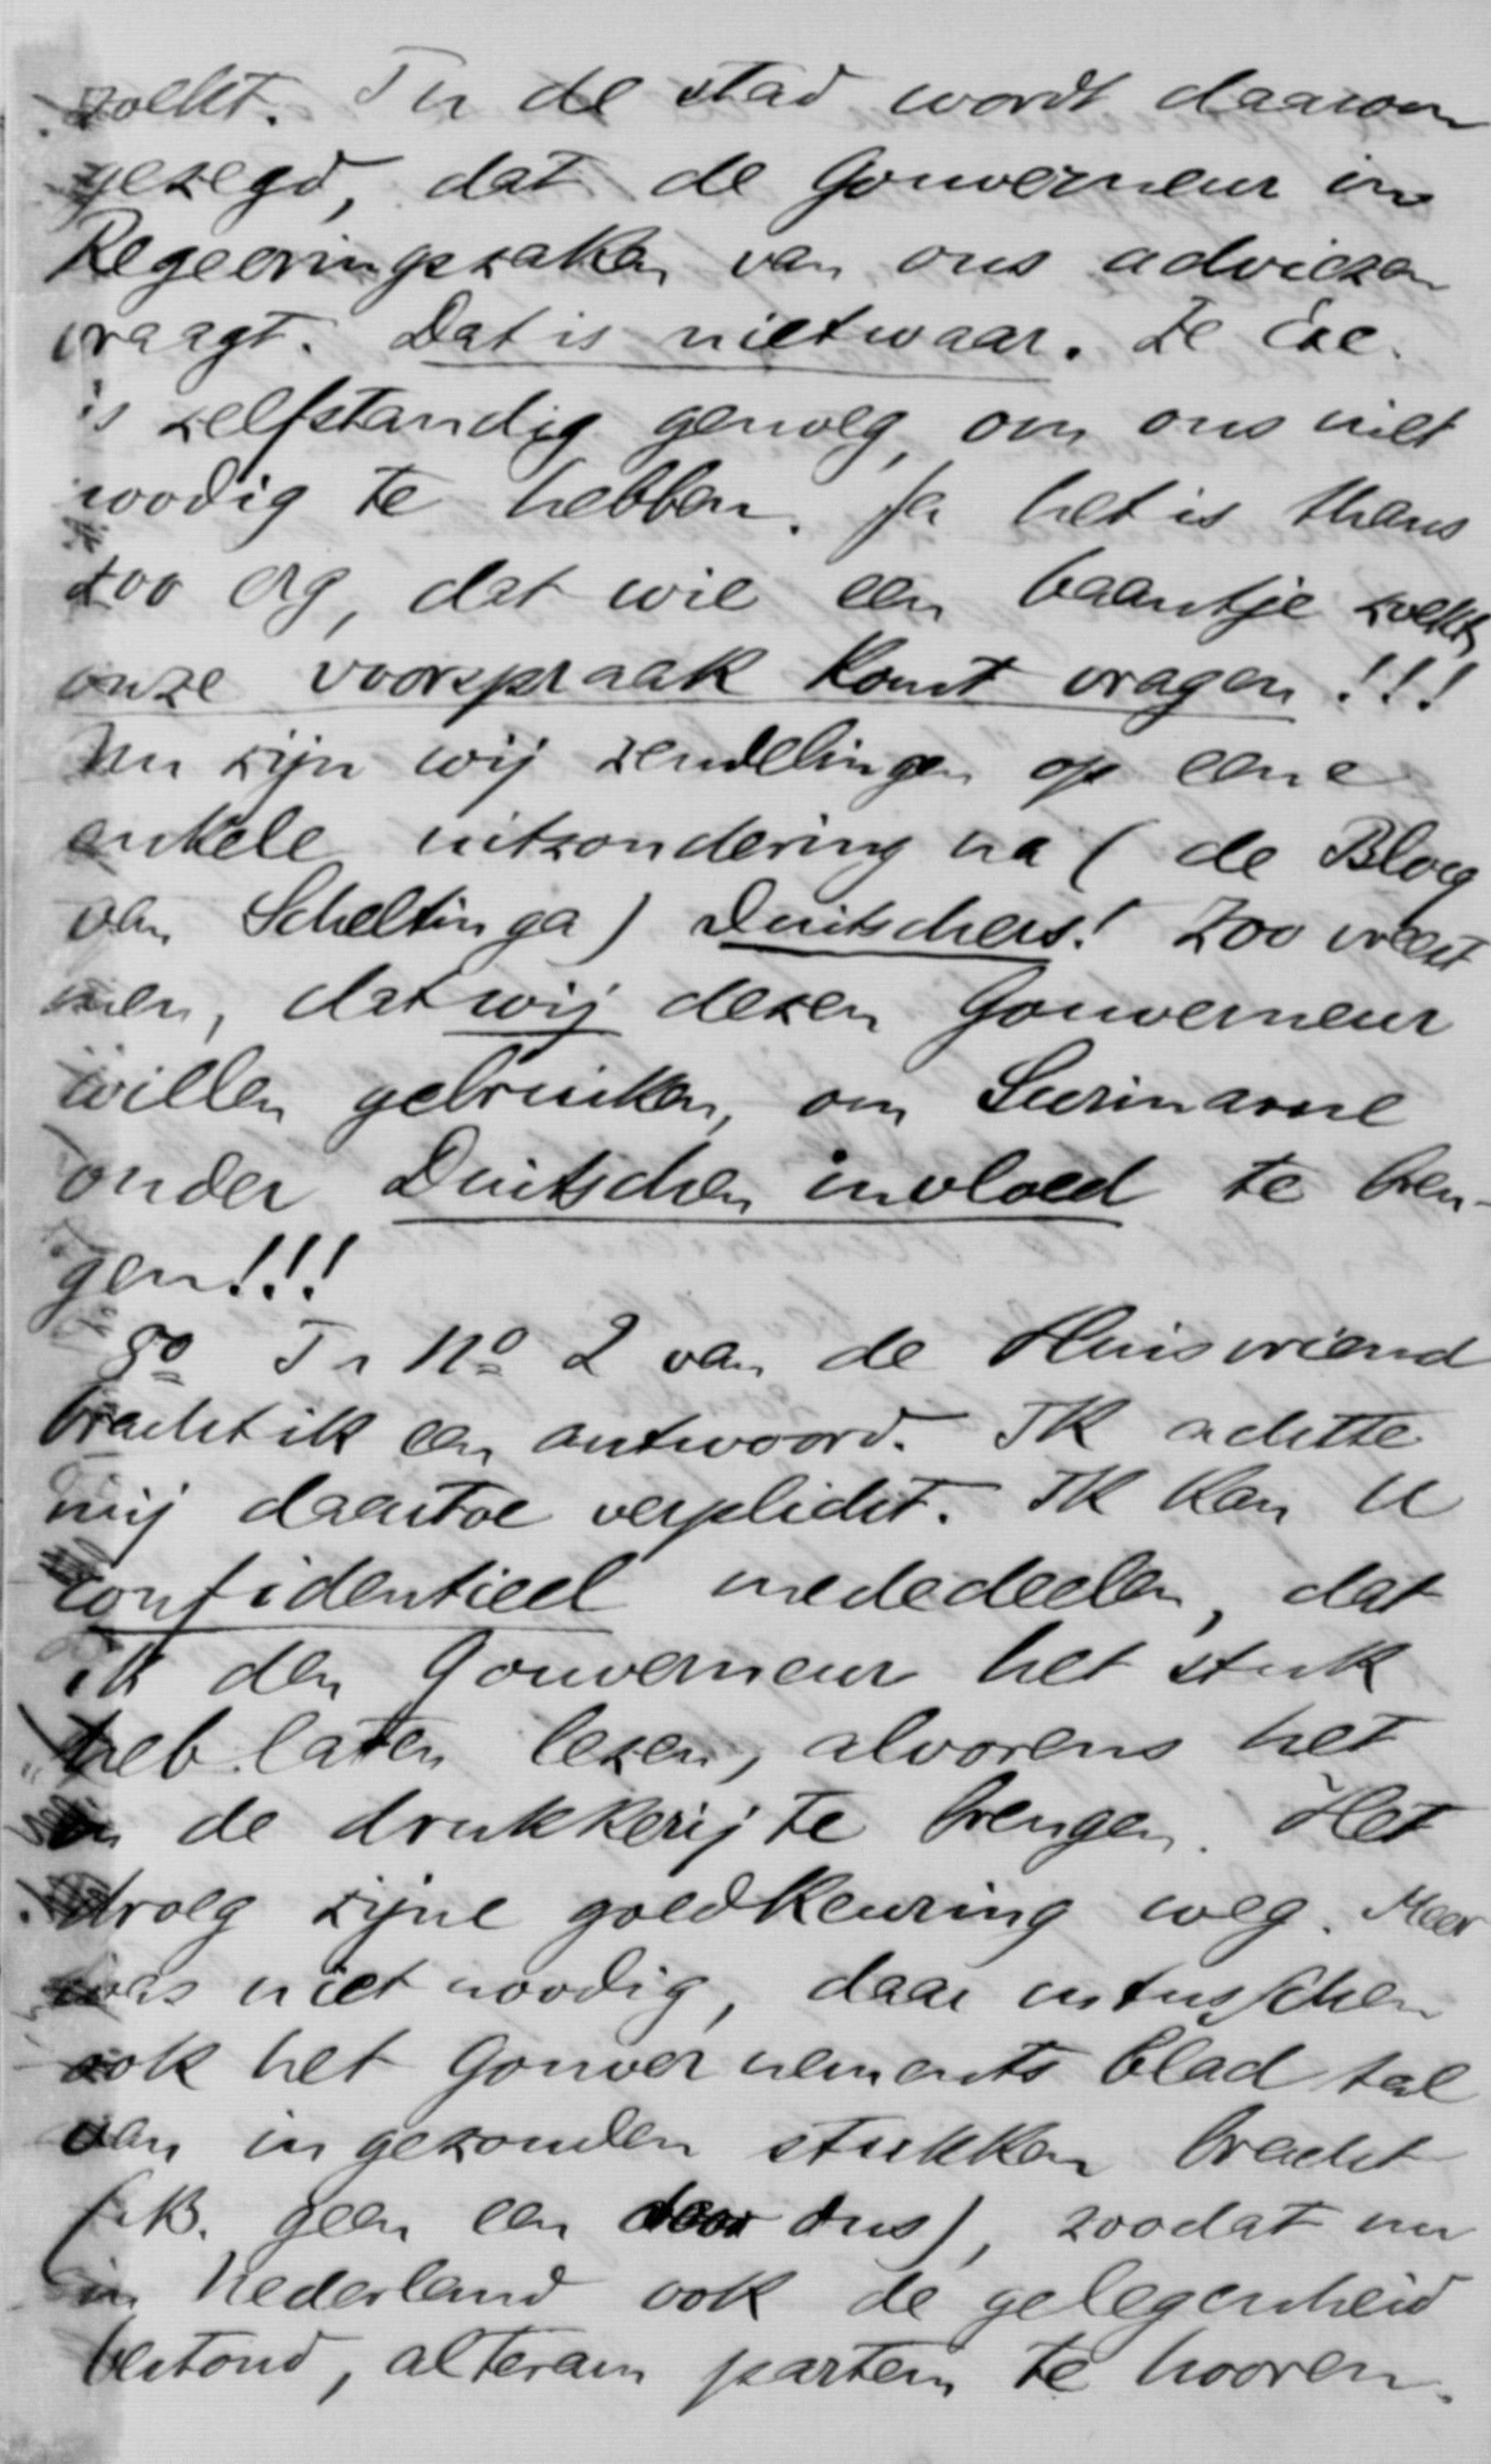 zoekt. In de stad wordt daarom
gezegd, dat de Gouverneur in
Regeeringszaken van ons adviezen
vraagt. Dat is niet waar. Ze Exc.
is zelfstandig genoeg, om ons niet
noodig te hebben. Ja het is thans
zoo erg, dat wie een baantje zoekt,
onze voorspraak komt vragen!!!
Nu zijn wij zendelingen op eene
enkele uitzondering na (de Blocq
van Scheltinga) Duitschers! Zoo vreest
men, dat wij dezen Gouverneur
willen gebruiken, om Suriname
onder Duitschen invloed te bren-
gen!!!
In No 2 van de Huisvriend
bracht ik een antwoord. Ik achtte
mij daartoe verplicht. Ik kan U
confidentieel mededeelen, dat
ik den Gouverneur het stuk
heb laten lezen, alvorens het
in de drukkerij te brengen. Het
droeg zijne goedkeuring weg. Meer
was niet noodig, daar intusschen
ook het Gouvernements blad tal
van ingezonden stukken bracht
(NB. geen een door ons), zoodat nu
in Nederland ook de gelegenheid
bestond, alteram partem te hooren.